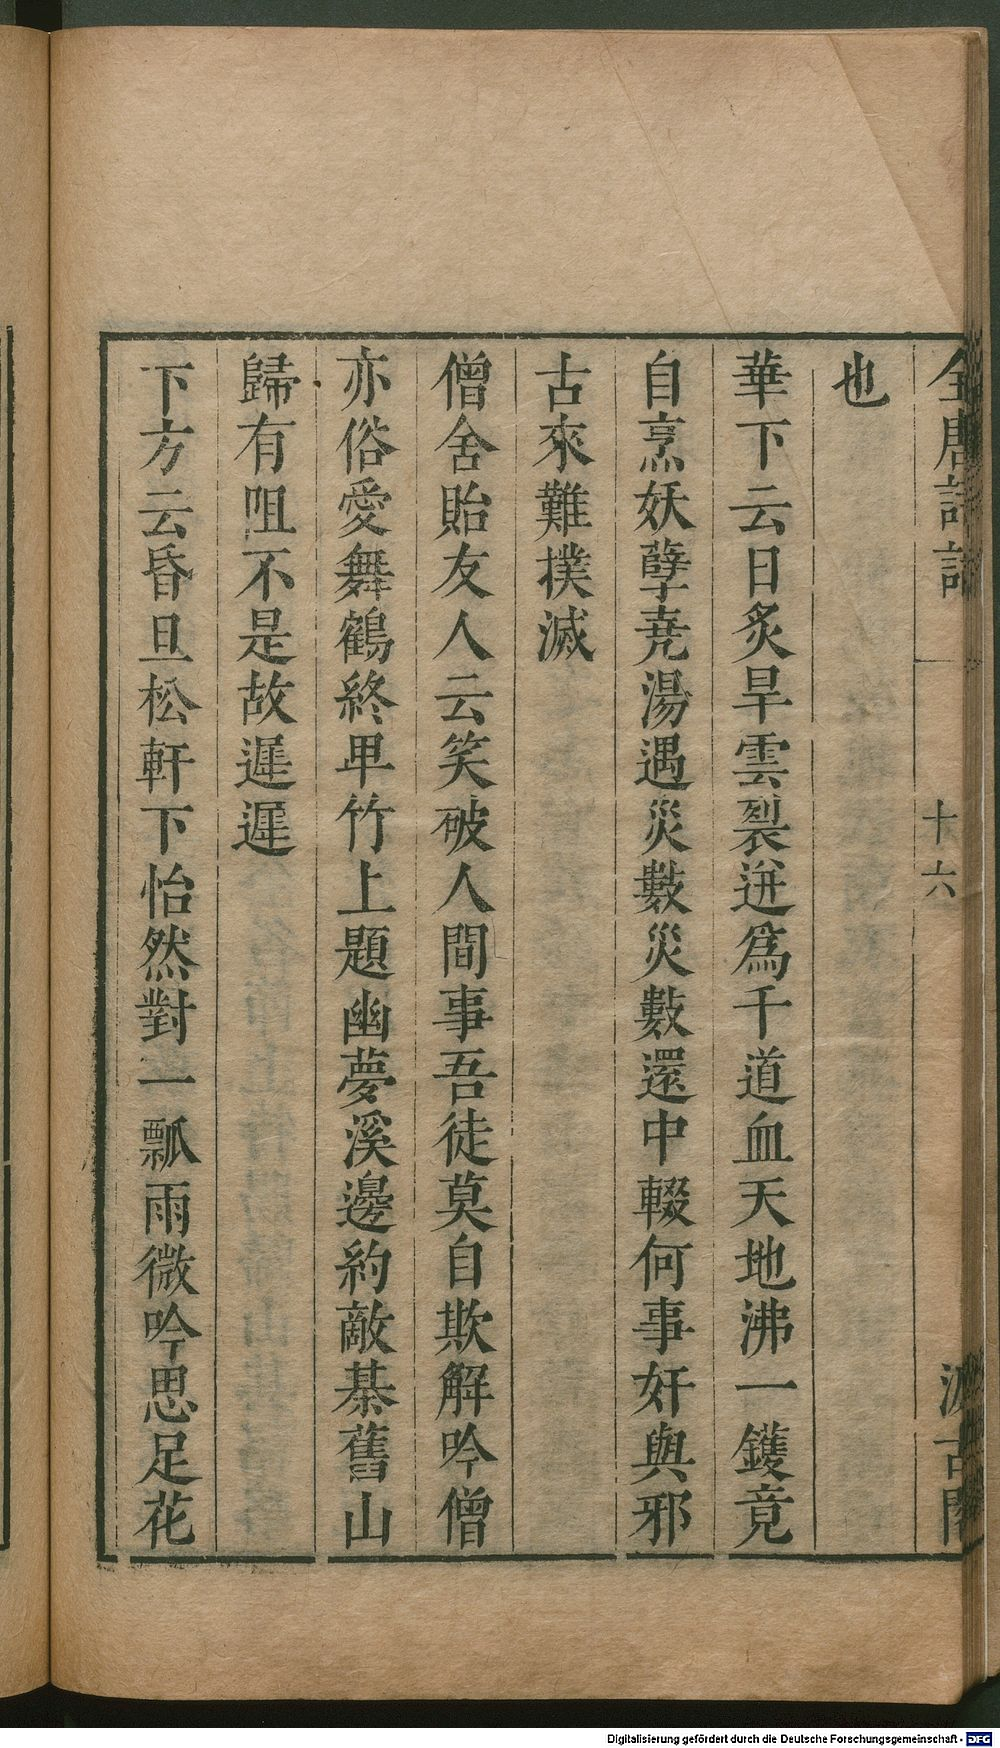 全唐詩話
十六
汲古閣
也
華下云日炙旱雲裂迸爲千道血天地沸一鑊竟
自烹妖孽堯湯遇災數災數還中輟何事奸與邪
古來難撲滅
僧舍貽友人云笑破人間事吾徒莫自欺解吟僧
亦俗愛舞鶴終卑竹上題幽夢溪邊約敵棊舊山
歸有咀不是故遲遲
下方云昏旦松軒下怡然對一瓢雨微吟思足花
Digitalisierung gefördert durch die Deutsche Forschungsgemeinschaft - DFG